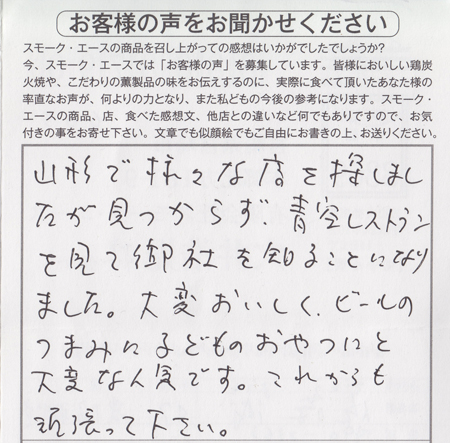 お客様の声をお聞かせください
スモーク・エースの商品を召し上がっての感想はいかがでしたでしょうか?
今、スモーク・エースでは「お客様の声」を募集しています。皆様においしい鶏炭
火焼や、こだわりの薫製品の味をお伝えするのに、実際に食べて頂いたあなた様の
率直なお声が、何よりの力となり、また私どもの今後の参考になります。スモーク・
エースの商品、店、食べた感想文、他店との違いなど何でもありですので、お気
付きの事をお寄せ下さい。文章でも似顔絵でもご自由にお書きの上、お送りください。
山形で様々な店を探しまし
たが見つからず、青空レストラン
を見て御社を知ることになり
ました。大変おいしく、ビールの
つまみに子どものおやつにと
大変な人気です。これからも
頑張って下さい。